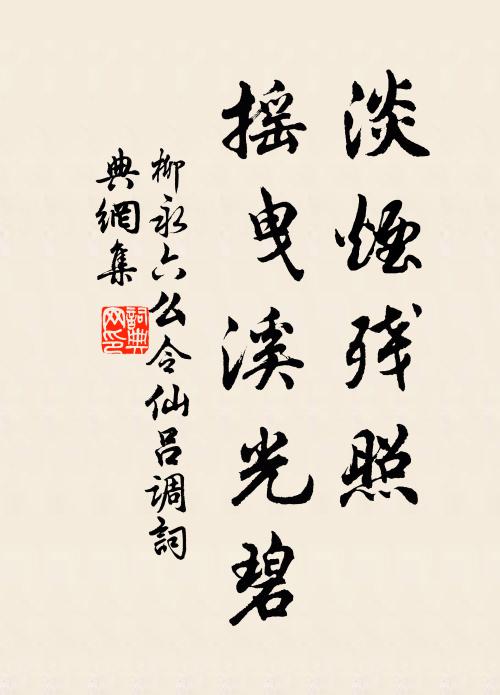 淡煙残照
摇曳溪光碧
柳永六么令仙吕调詞
典網集
詞典网印